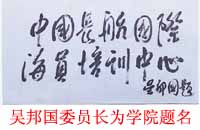 中国長航国際
海員培訓中心
吴邦国題
吴邦国委员长为学院题名